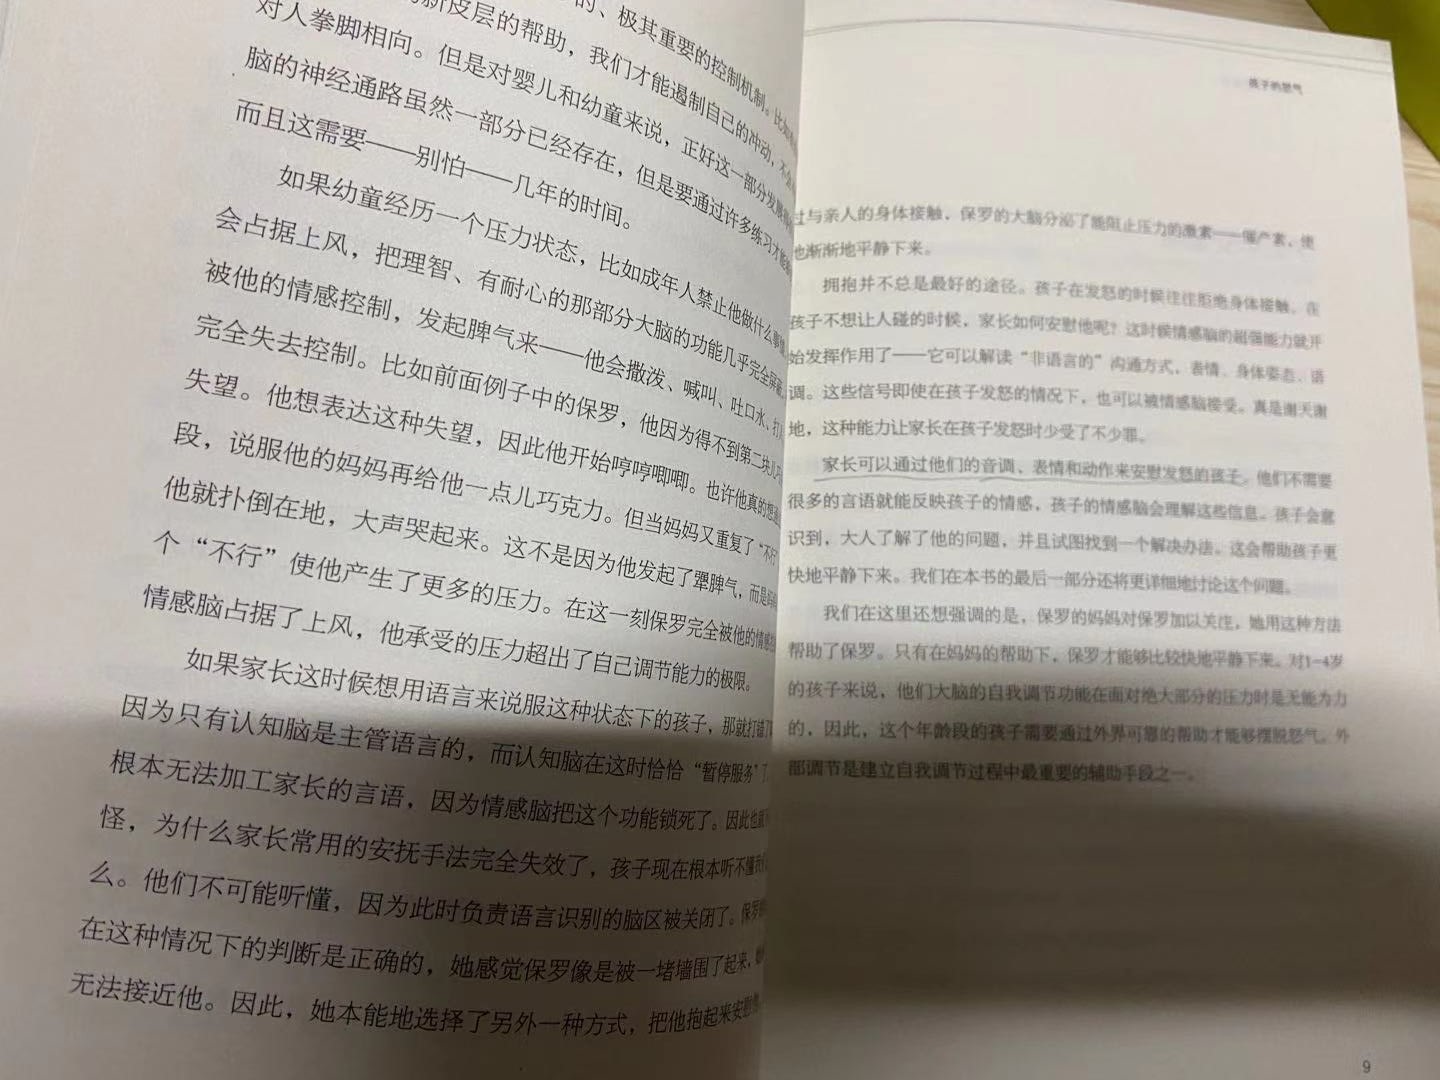 的、极其重要的控制机制。比如
新皮层的帮助，我们才能遏制自己的冲动，不会
对人拳脚相向。但是对婴儿和幼童来说，正好这一部分发展
脑的神经通路虽然一部分已经存在，但是要通过许多练习才能
而且这需要——别怕——几年的时间。
如果幼童经历一个压力状态，比如成年人禁止他做什么事情
会占据上风，把理智、有耐心的那部分大脑的功能几乎完全屏蔽
被他的情感控制，发起脾气来——他会撒泼、喊叫、吐口水、打
完全失去控制。比如前面例子中的保罗，他因为得不到第二块儿巧
失望。他想表达这种失望，因此他开始哼哼唧唧。也许他真的想通
段，说服他的妈妈再给他一点儿巧克力。但当妈妈又重复了“不行”
他就扑倒在地，大声哭起来。这不是因为他发起了犟脾气，而是妈妈
个“不行”使他产生了更多的压力。在这一刻保罗完全被他的情感
情感脑占据了上风，他承受的压力超出了自己调节能力的极限。
如果家长这时候想用语言来说服这种状态下的孩子，那就打错了
因为只有认知脑是主管语言的，而认知脑在这时恰恰“暂停服务”了
根本无法加工家长的言语，因为情感脑把这个功能锁死了。因此也就
怪，为什么家长常用的安抚手法完全失效了，孩子现在根本听不懂我们
么。他们不可能听懂，因为此时负责语言识别的脑区被关闭了。保罗
在这种情况下的判断是正确的，她感觉保罗像是被一堵墙围了起来，
无法接近他。因此，她本能地选择了另外一种方式，把他抱起来安慰
孩子的怒气
过与亲人的身体接触，保罗的大脑分泌了能阻止压力的激素——催产素，使
他渐渐地平静下来。
拥抱并不总是最好的途径。孩子在发怒的时候往往拒绝身体接触。在
孩子不想让人碰的时候，家长如何安慰他呢？这时候情感脑的超强能力就开
始发挥作用了——它可以解读“非语言的”沟通方式，表情、身体姿态、语
调。这些信号即使在孩子发怒的情况下，也可以被情感脑接受。真是谢天谢
地，这种能力让家长在孩子发怒时少受了不少罪。
家长可以通过他们的音调、表情和动作来安慰发怒的孩子。他们不需要
很多的言语就能反映孩子的情感，孩子的情感脑会理解这些信息。孩子会意
识到，大人了解了他的问题，并且试图找到一个解决办法。这会帮助孩子更
快地平静下来。我们在本书的最后一部分还将更详细地讨论这个问题。
我们在这里还想强调的是，保罗的妈妈对保罗加以关注，她用这种方法
帮助了保罗。只有在妈妈的帮助下，保罗才能够比较快地平静下来。对1~4岁
的孩子来说，他们大脑的自我调节功能在面对绝大部分的压力时是无能为力
的，因此，这个年龄段的孩子需要通过外界可靠的帮助才能够摆脱怒气。外
部调节是建立自我调节过程中最重要的辅助手段之一。
9